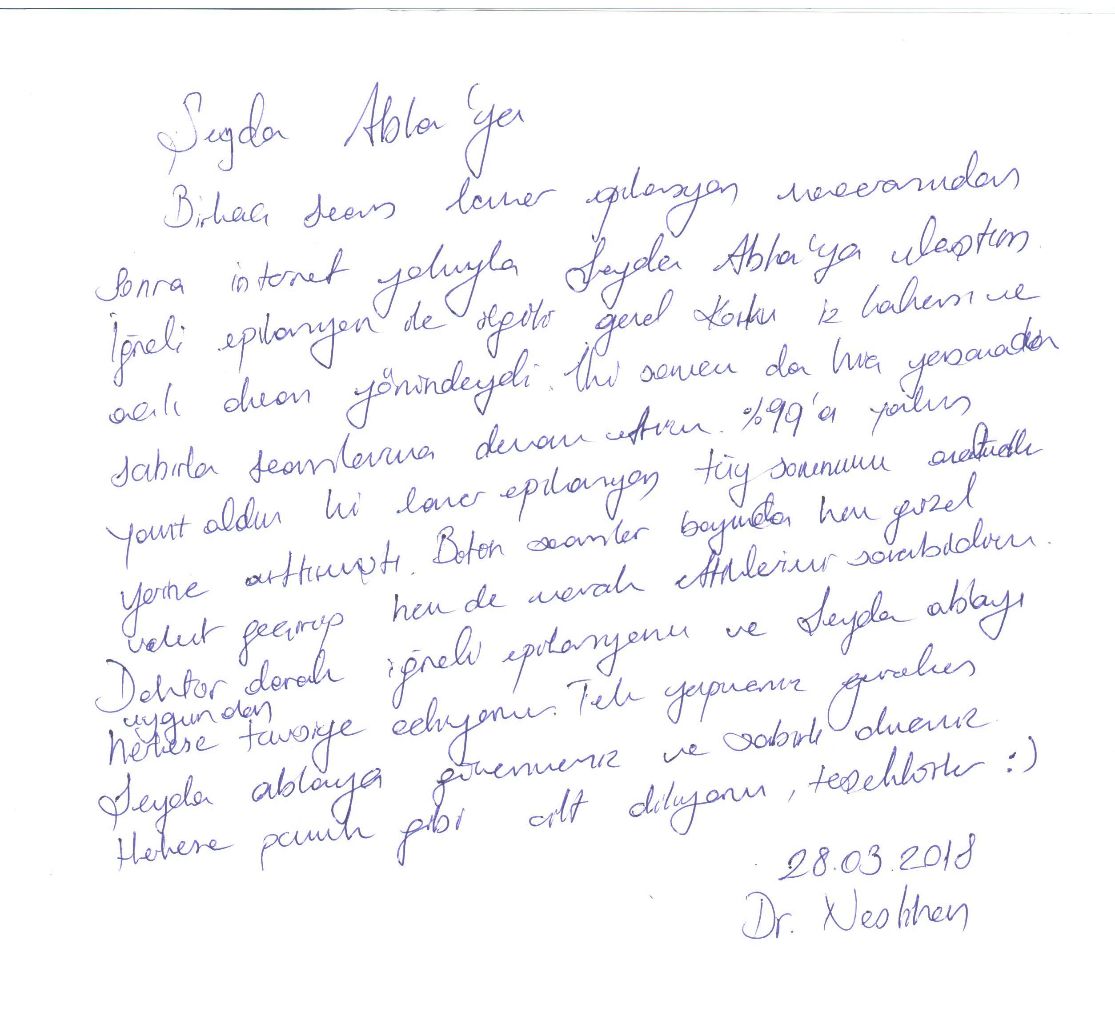 Şeyda Abla'ya
Birkaç seans lazer epilasyon maceramdan
sonra internet yoluyla Şeyda Abla'ya ulaştım.
İğneli epilasyon ile ilgili genel korku iz kalması ve
acılı olması yönündeydi. İki senem da hiç yaşamadan
sabırla seanslarıma devam ettim. %99'a yakın
yanıt aldım ki lazer epilasyon tüy sorunumu azaltmak
yerine arttırmıştı. Bütün seanslar boyunca hem güzel
vakit geçirip hem de merak ettiklerimi sorabildim.
Doktor olarak iğneli epilasyonu ve Şeyda ablayı
uygundan
herkese tavsiye ediyorum. Tek yapmanız gereken
Şeyda ablaya güvenmeniz ve sabırlı olmanız.
Herkese pamuk gibi cilt diliyorum, teşekkürler :)
28.03.2018
Dr. Neslihan